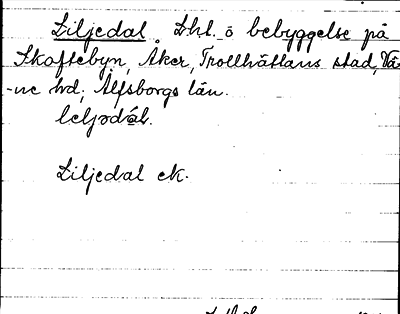 Liljedal. Lht. ö bebyggelse på
Skoftebyn, Åker, Trollhättans stad, Vä-
-ne hd, Älfsborgs län.
Liljedal ek.